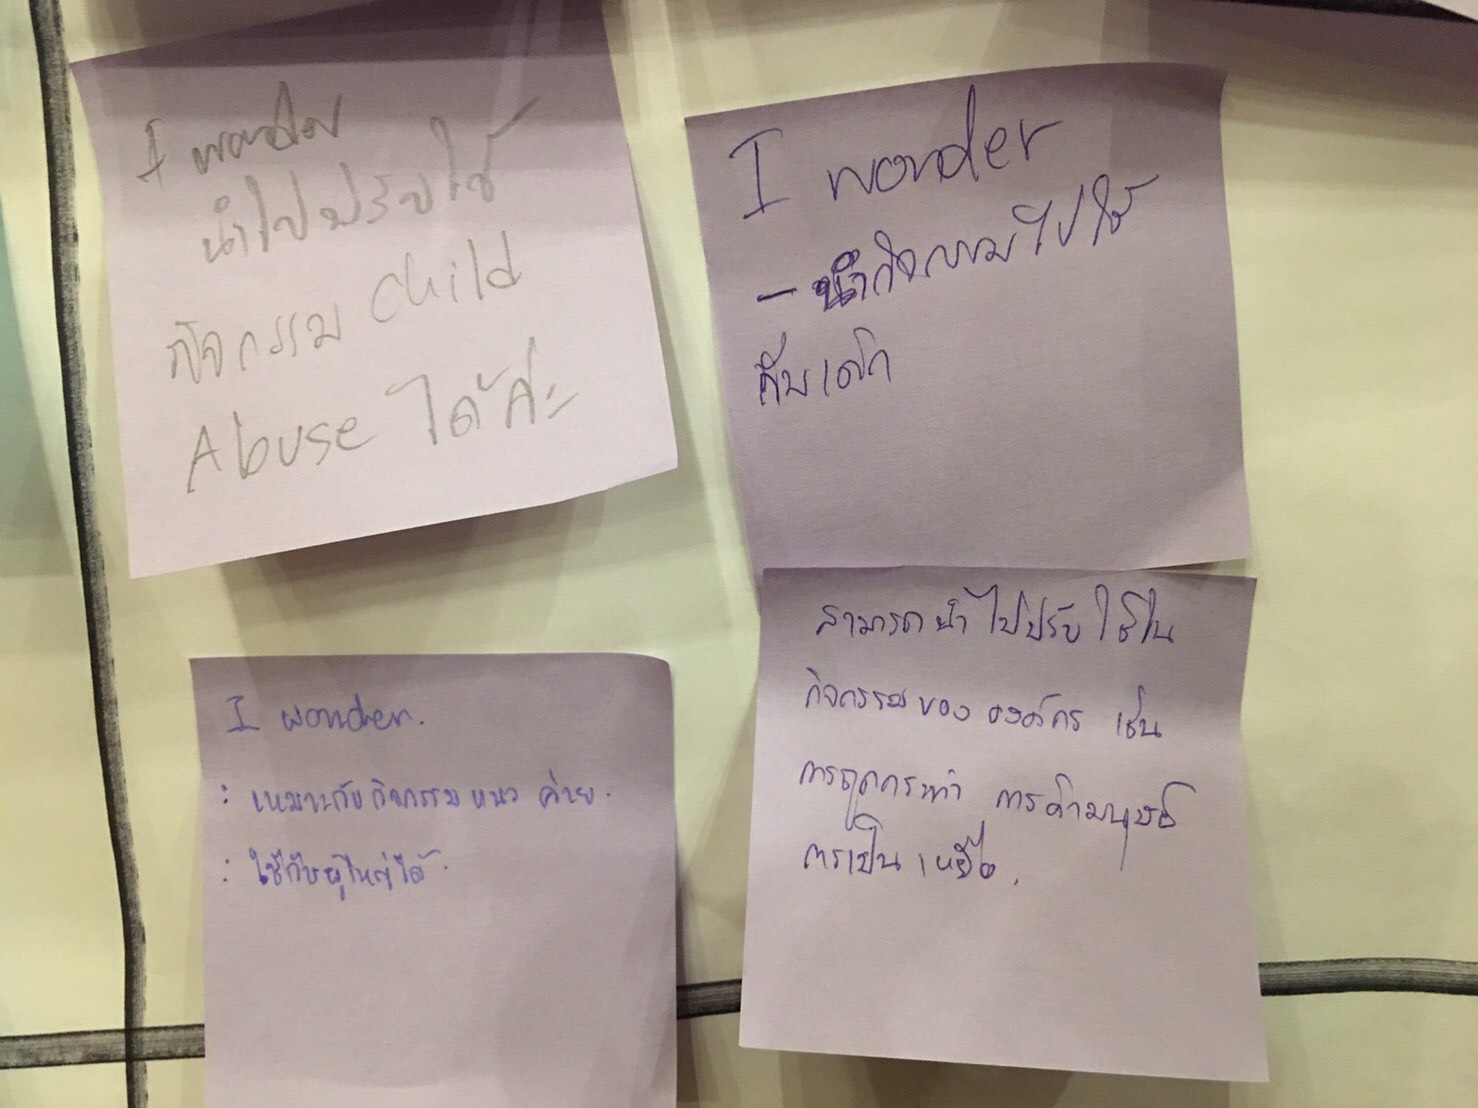 I wonder
นำไปปรับใช้
กิจกรรม Child
Abuse ได้ค่ะ
I wonder
- นำกิจกรรมไปใช้
กับเด็ก
I wonder.
: เหมาะกับกิจกรรมแนว ค่าย.
: ใช้กับผู้ใหญ่ได้.
สามารถนำไปปรับใช้ใน
กิจกรรมของ องค์กร เช่น
การถูกกระทำ การค้ามนุษย์
การเป็นเหยื่อ.